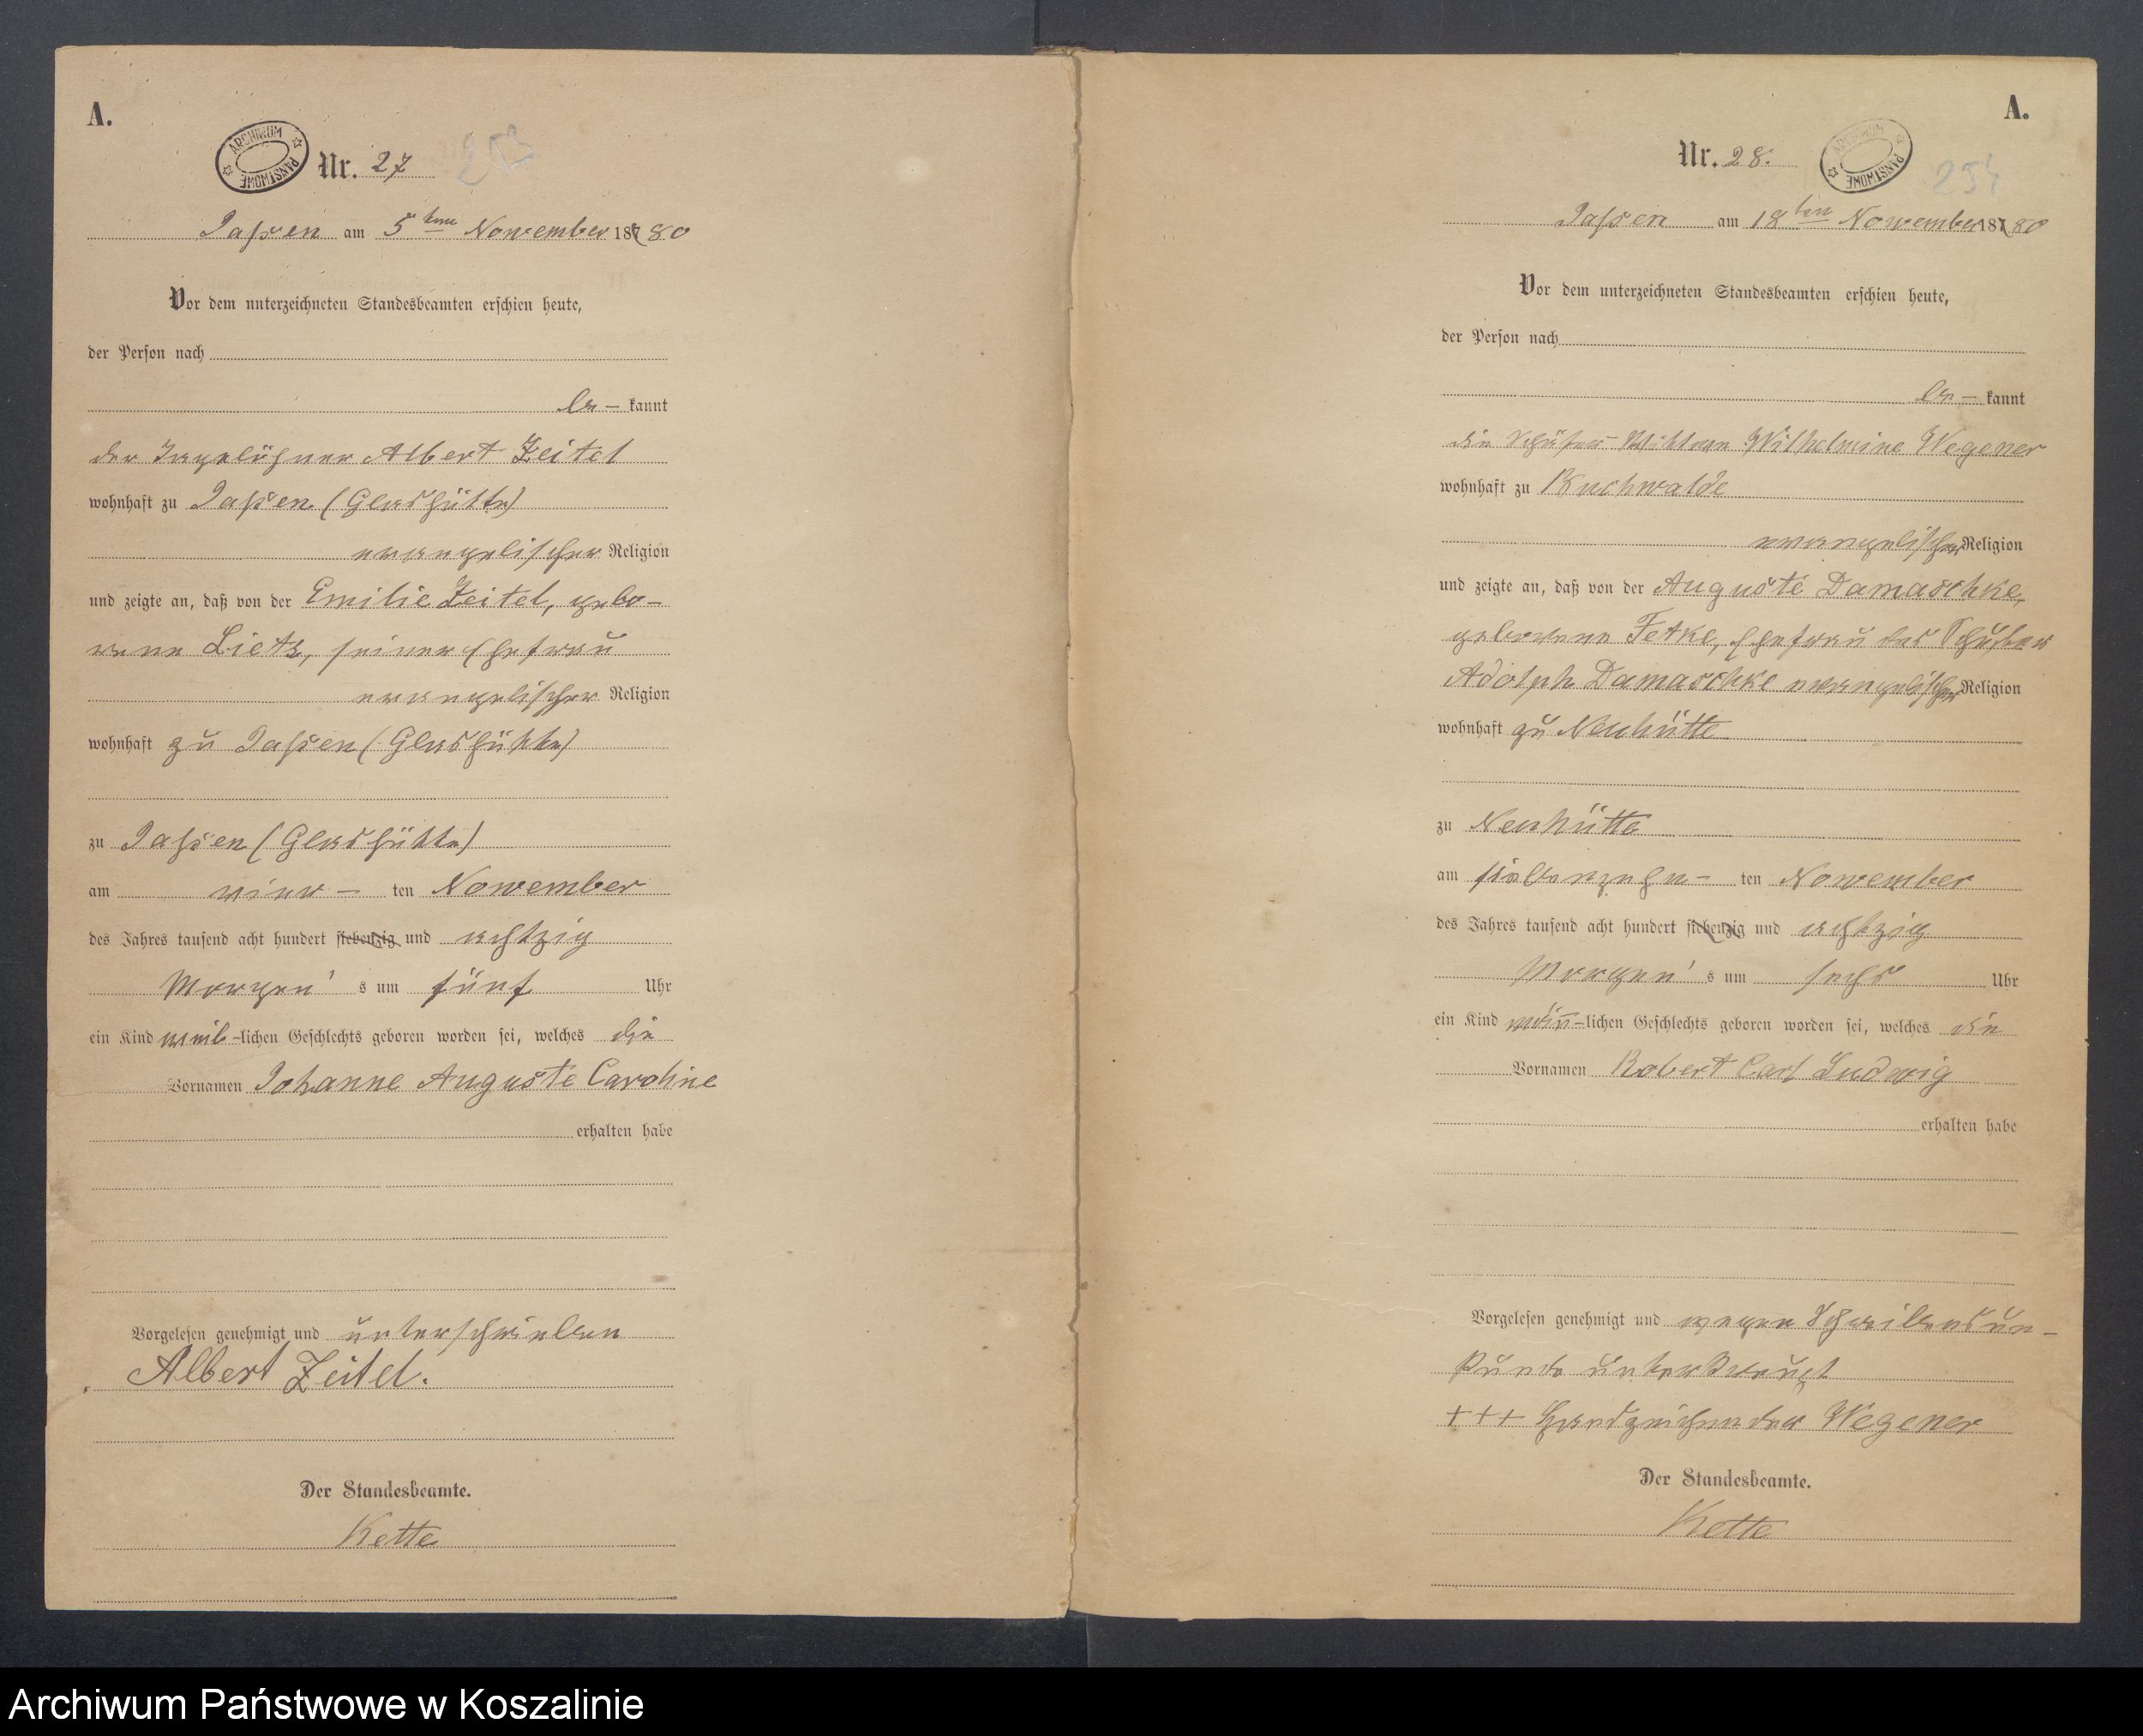 A.
ARCHIWUM PAŃSTWOWE
Nr. 27
253
Jassen am 5ten November 1880
Vor dem unterzeichneten Standesbeamten erschien heute,
der Person nach
be- kannt
der Tagelöhner Albert Zeitel
wohnhaft zu Jassen (Glashütte)
evangelischer Religion
und zeigte an, daß von der Emilie Zeitel, gebo-
rene Lietz, seiner Ehefrau
evangelischer Religion
wohnhaft zu Jassen (Glashütte)
zu Jassen (Glashütte)
am vier- ten November
des Jahres tausend acht hundert siebenzig und achtzig
Morgen's um fünf Uhr
ein Kind weib-lichen Geschlechts geboren worden sei, welches die
Vornamen Johanne Auguste Caroline
erhalten habe
Vorgelesen genehmigt und unterschrieben
Albert Zeitel.
Der Standesbeamte.
Kette
A.
Nr. 28.
ARCHIWUM PAŃSTWOWE
254
Jassen am 18ten November 1880
Vor dem unterzeichneten Standesbeamten erschien heute,
der Person nach
be- kannt
die Schäfer-Wittwe Wilhelmine Wegener
wohnhaft zu Buchwalde
evangelischer Religion
und zeigte an, daß von der Auguste Damaschke,
geborene Fetke, Ehefrau des
Adolph Damaschke evangelischer Religion
wohnhaft zu Neuhütte
zu Neuhütte
am siebenzehn- ten November
des Jahres tausend acht hundert siebenzig und achtzig
Morgen's um sechs Uhr
ein Kind män-lichen Geschlechts geboren worden sei, welches die
Vornamen Robert Carl Ludwig
erhalten habe
Vorgelesen genehmigt und wegen Schreibensun-
kunde unterkreuzt
+++ Handzeichen der Wegener
Der Standesbeamte.
Kette
Archiwum Państwowe w Koszalinie